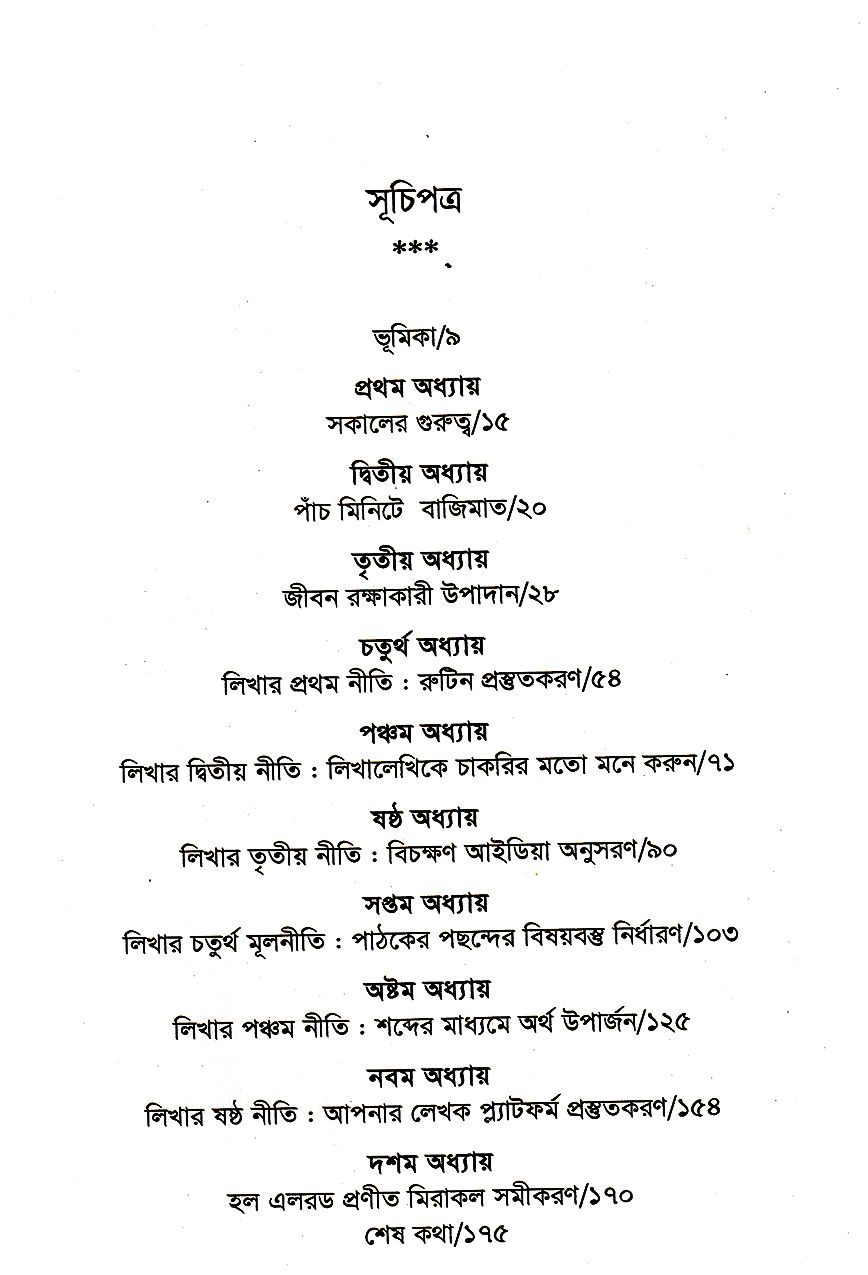 সূচিপত্র
***
ভূমিকা/৯
প্রথম অধ্যায়
সকালের গুরুত্ব/১৫
দ্বিতীয় অধ্যায়
পাঁচ মিনিটে বাজিমাত/২০
তৃতীয় অধ্যায়
জীবন রক্ষাকারী উপাদান/২৮
চতুর্থ অধ্যায়
লিখার প্রথম নীতি : রুটিন প্রস্তুতকরণ/৫৪
পঞ্চম অধ্যায়
লিখার দ্বিতীয় নীতি : লিখালেখিকে চাকরির মতো মনে করুন/৭১
ষষ্ঠ অধ্যায়
লিখার তৃতীয় নীতি : বিচক্ষণ আইডিয়া অনুসরণ/৯০
সপ্তম অধ্যায়
লিখার চতুর্থ মূলনীতি : পাঠকের পছন্দের বিষয়বস্তু নির্ধারণ/১০৩
অষ্টম অধ্যায়
লিখার পঞ্চম নীতি : শব্দের মাধ্যমে অর্থ উপার্জন/১২৫
নবম অধ্যায়
লিখার ষষ্ঠ নীতি : আপনার লেখক প্ল্যাটফর্ম প্রস্তুতকরণ/১৫৪
দশম অধ্যায়
হল এলরড প্রণীত মিরাকল সমীকরণ/১৭০
শেষ কথা/১৭৫